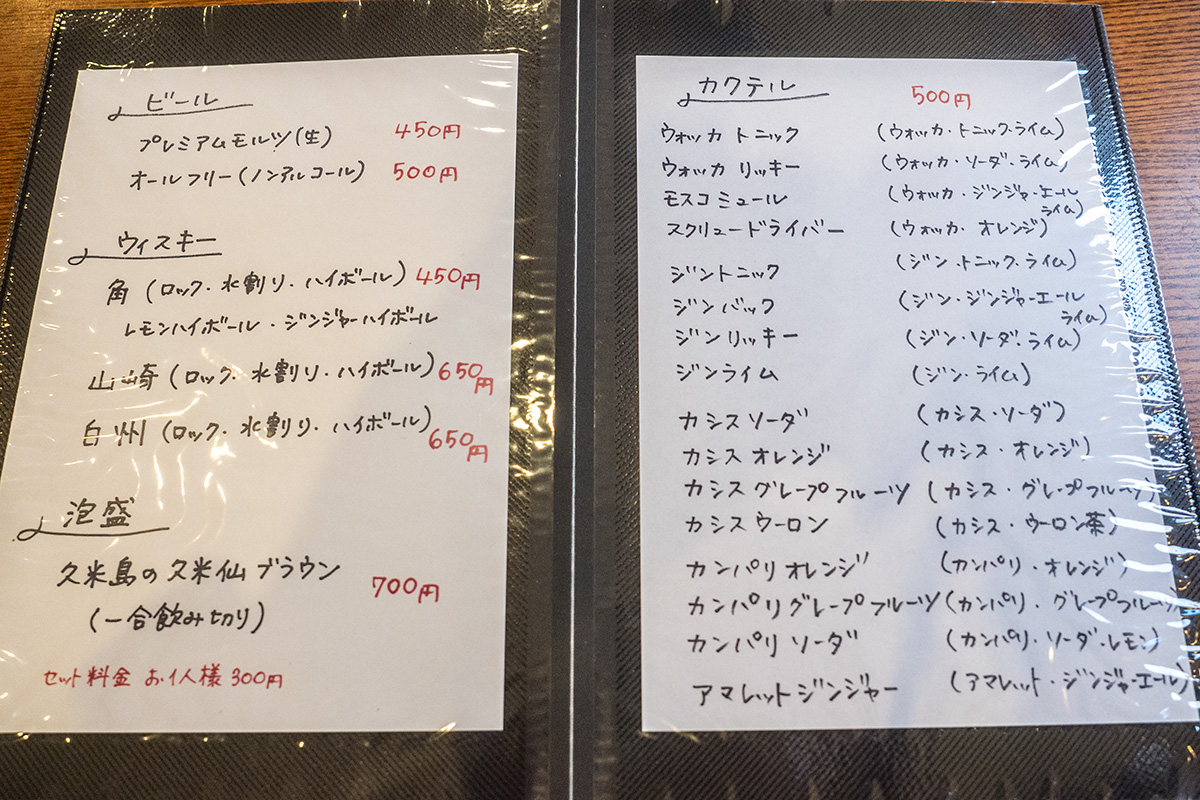 ビール
プレミアムモルツ(生) 450円
オールフリー(ノンアルコール) 500円
ウィスキー
角 (ロック・水割り・ハイボール) 450円
レモンハイボール・ジンジャーハイボール
山崎 (ロック・水割り・ハイボール) 650円
白州 (ロック・水割り・ハイボール) 650円
泡盛
久米島の久米仙ブラウン 700円
(一合飲み切り)
セット料金 お1人様 300円
カクテル 500円
ウォッカ トニック (ウォッカ・トニック・ライム)
ウォッカ リッキー (ウォッカ・ソーダ・ライム)
モスコミュール (ウォッカ・ジンジャーエール
ライム)
スクリュードライバー (ウォッカ・オレンジ)
ジントニック (ジン・トニック・ライム)
ジンバック (ジン・ジンジャーエール
ライム)
ジンリッキー (ジン・ソーダ・ライム)
ジンライム (ジン・ライム)
カシスソーダ (カシス・ソーダ)
カシスオレンジ (カシス・オレンジ)
カシスグレープフルーツ (カシス・グレープフルーツ)
カシスウーロン (カシス・ウーロン茶)
カンパリオレンジ (カンパリ・オレンジ)
カンパリグレープフルーツ (カンパリ・グレープフルーツ)
カンパリソーダ (カンパリ・ソーダ・レモン)
アマレットジンジャー (アマレット・ジンジャーエール)